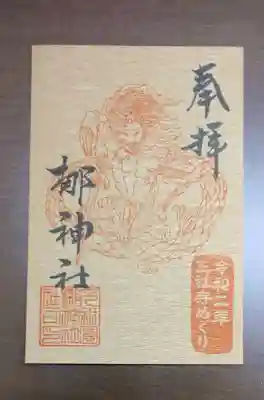 奉拝
令和二年
三社寺めぐり
梛神社